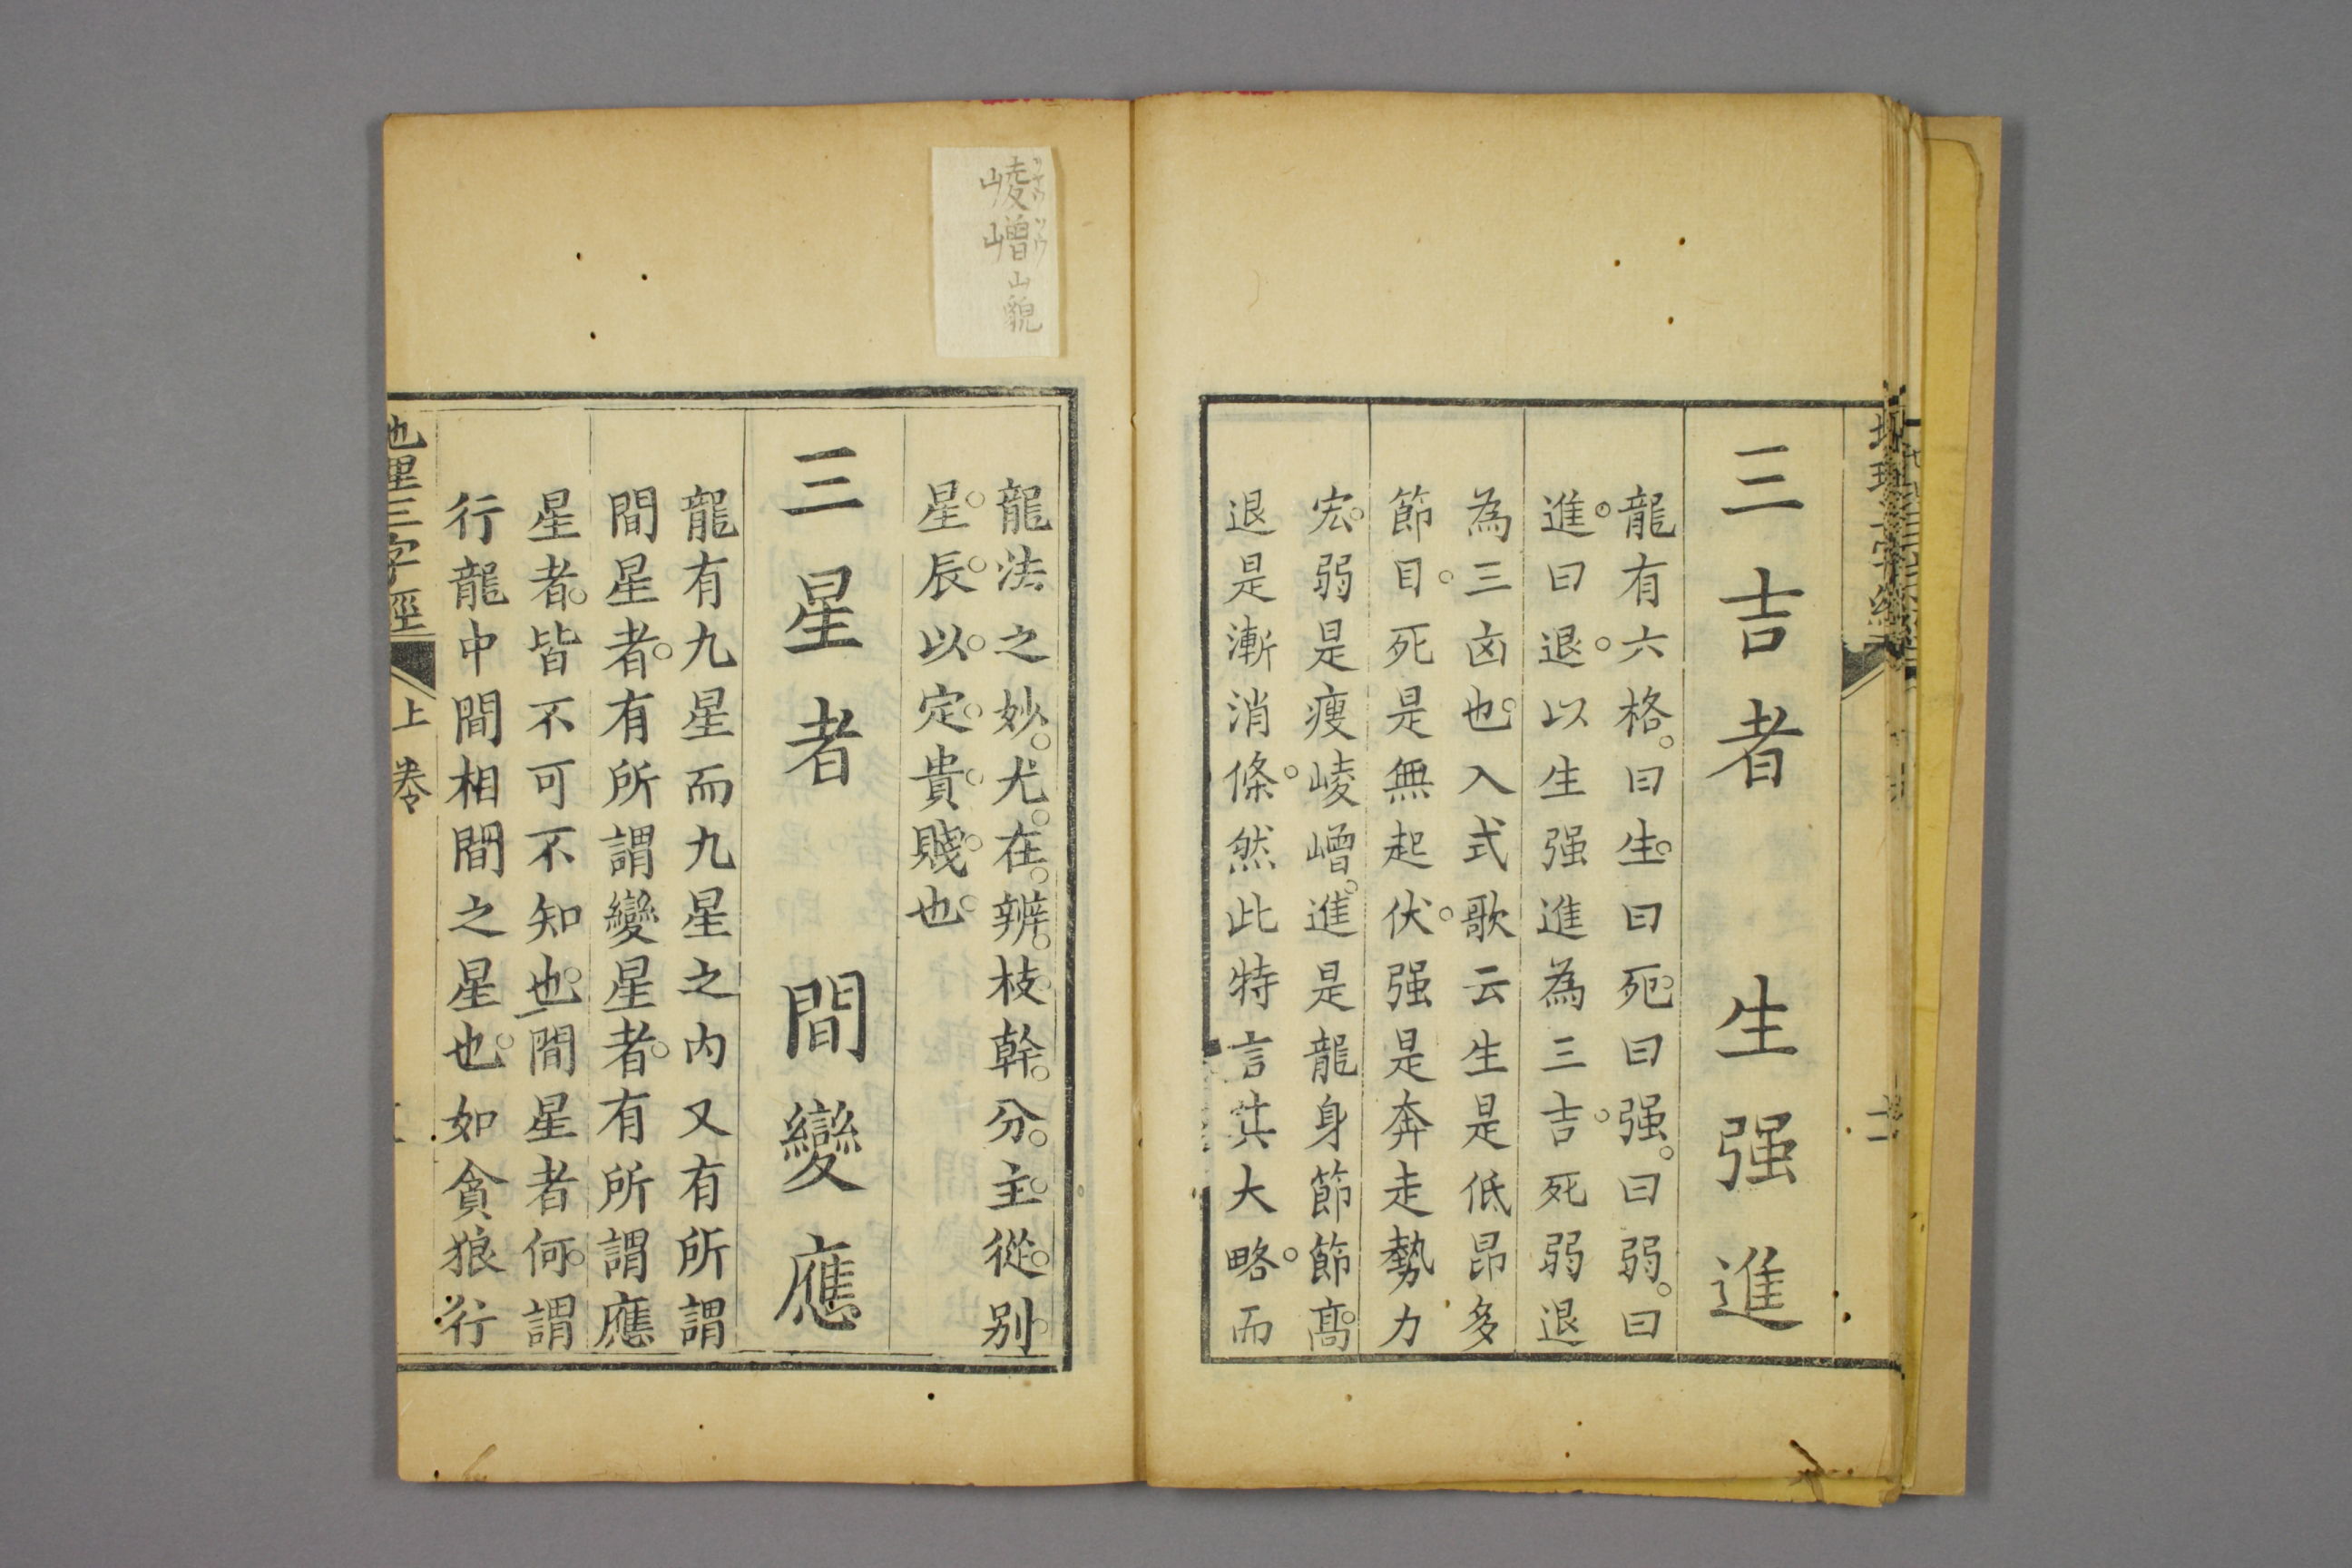 三吉者 生强進
龍有六格。曰生。曰死。曰强。曰弱。曰
進。曰退。以生强進為三吉。死弱退
為三凶也。入式歌云生是低昂多
節目。死是無起伏。强是奔走勢力
宏。弱是瘦崚嶒。進是龍身節節高。
退是漸消條。然此特言其大略。而
崚嶒山貌
龍法之妙。尤。在。辨。枝。幹。分。主。從。別。
星。辰。以。定。貴。賤。也。
三星者 間變應
龍有九星而九星之内又有所謂
間星者。有所謂變星者。有所謂應
星者。皆不可不知也。間星者何。謂
行龍中間相間之星也。如貪狼行
地理三字經
上卷